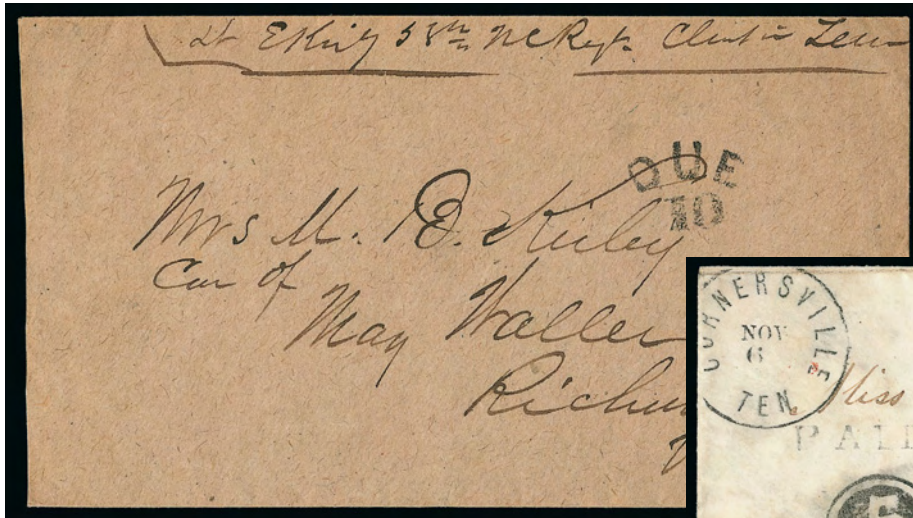 Lt E Kirby 58th NC Regt Clinton Tenn
DUE
10
Mrs M. E. Kirby
Care of
May Waller
Richm
CORNERSVILLE
NOV
6
TEN.
Miss
PAID
5